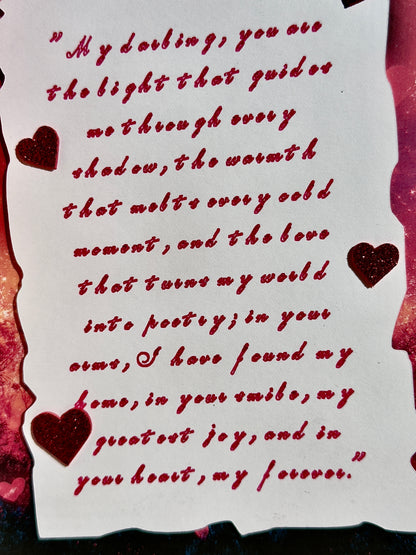 "My darling, you are
the light that guides
me through every
shadow, the warmth
that melts every cold
moment, and the love
that turns my world
into poetry; in your
arms, I have found my
home, in your smile, my
greatest joy, and in
your heart, my forever."